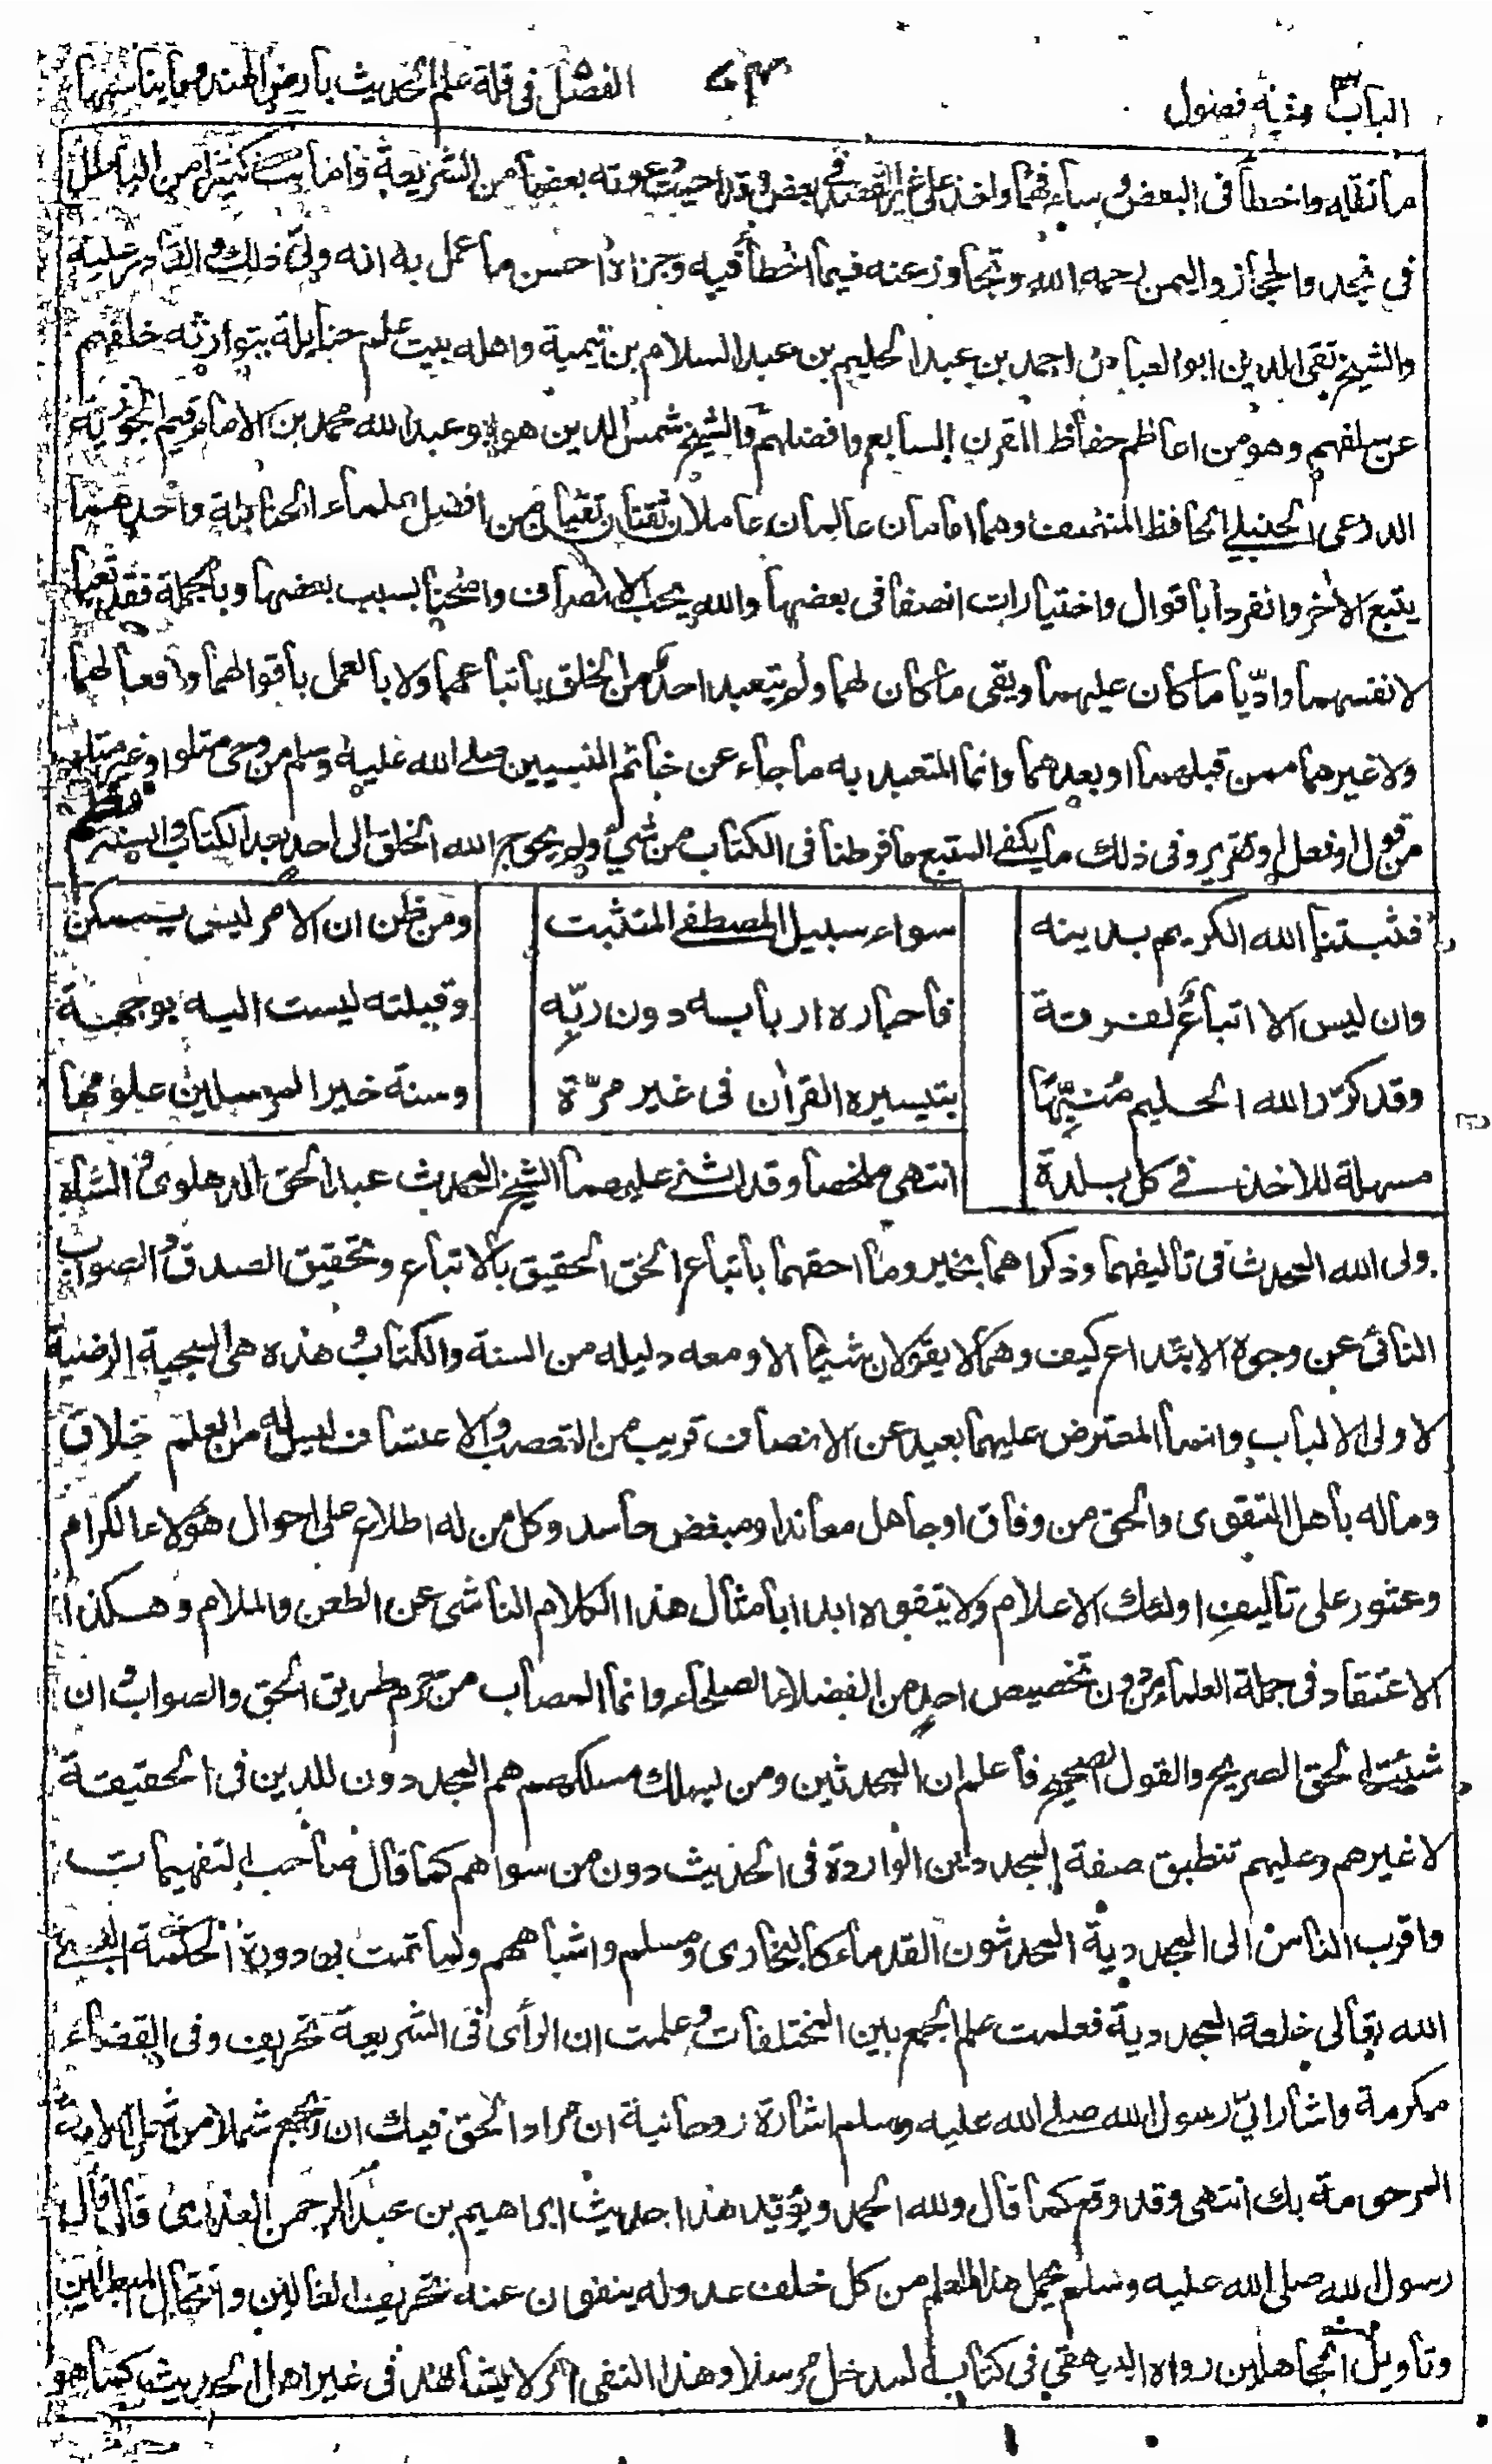 الباب ٣ وفيه فصول
٧٣
الفصل في قلة علم الحديث بارض الهند وما يناسبها
ما نقله واخطأ في البعض وساء فهما ولفذ على غير القصد في بعض وقد احيت دعوته بعضها من الشريعة واماتت كثيرا من الباطل
في نجد والحجاز واليمن رحمه الله وتجاوز عنه فيما اخطأ فيه وجزاه احسن ما عمل به انه ولي ذلك والقادر عليه
والشيخ تقي الدين ابو العباس احمد بن عبد الحليم بن عبد السلام بن تيمية واهله بيت علم حنابلة يتوارثه خلفهم
عن سلفهم وهو من اعاظم حفاظ القرن السابع وافضلهم والشيخ شمس الدين هو ابو عبد الله محمد بن الامام قيم الجوزية
الدرعي الحنبلي الحافظ المنصف وهما امامان عالمان عاملان ثقتان تقيان من افضل علماء الحنابلة واحد منهما
يتبع الاخر وانفردا باقوال واختيارات انصفا في بعضها والله يحب الانصاف وامتحنا بسبب بعضها وبالجملة فقد تعبا
لانفسهما واديا ما كان عليهما وبقي ما كان لهما ولم يتعبد احد من الخلق باتباعهما ولا بالعمل باقوالهما وافعالهما
ولا غيرهما ممن قبلهما او بعدهما وانما المتعبد به ما جاء عن خاتم النبيين صلى الله عليه وسلم من وحي متلو او غير متلو
من قول او فعل او تقرير وفي ذلك ما يكفي المتبع ما فرطنا في الكتاب من شيء ولم يحوج الله الخلق الى احد بعد الكتاب والسنة
فثبتنا الله الكريم بدينه سواء سبيل المصطفى المتثبت ومن ظن ان الامر ليس يمسكن
وان ليس الا اتباع لفرقة فاحباره اربابه دون ربه وقبلته ليست اليه بوجهة
وقد كرر الله الحليم منبها بتيسيره القران في غير مرة وسنة خير المرسلين علومها
مسهلة للاخذ في كل بلدة انتهى ملخصا وقد اثنى عليهما الشيخ المحدث عبد الحق الدهلوي والشاه
ولي الله المحدث في تاليفهما وذكراهما بخير وما احقهما باتباع الحق الحقيق بالاتباع وتحقيق الصدق والصواب
النائي عن وجوه الابتداع كيف وهما لا يقولان شيئا الا ومعه دليله من السنة والكتاب وهذه هي السجية الرضية
لاولي الالباب وانما المعترض عليهما بعيد عن الانصاف قريب من التعصب والاعتساف ليس له من العلم خلاق
وماله باهل التقوى والحق من وفاق او جاهل معاند او مبغض حاسد وكل من له اطلاع على احوال هؤلاء الكرام
وعثور على تاليف اولئك الاعلام ولا يتفوه ابدا بامثال هذا الكلام الناشي عن الطعن والملام وهكذا
الاعتقاد في جملة العلماء من دون تخصيص احد من الفضلاء الصلحاء وانما المصاب من حرم طريق الحق والصواب وان
شئت الحق الصريح والقول الصحيح فاعلم ان المحدثين ومن يسلك مسلكهم هم المجددون للدين في الحقيقة
لا غيرهم وعليهم تنطبق صفة المجددين الواردة في الحديث دون من سواهم كما قال صاحب التفهيمات
واقرب الناس الى المجددية المحدثون القدماء كالبخاري ومسلم واشباههم ولما تمت بي دورة الحكمة البسني
الله تعالى خلعة المجددية فعلمت علم الجمع بين المختلفات وعلمت ان الرأي في الشريعة تحريف وفي القضاء
مكرمة واشار الي رسول الله صلى الله عليه وسلم اشارة روحانية ان مراد الحق فيك ان يجمع شملا من شمل الامة
المرحومة بك انتهى وقد وقع كما قال ولله الحمد ويؤيد هذا حديث ابراهيم بن عبد الرحمن العذري قال قال
رسول الله صلى الله عليه وسلم يحمل هذا العلم من كل خلف عدوله ينفون عنه تحريف الغالين وانتحال المبطلين
وتاويل الجاهلين رواه البيهقي في كتاب المدخل مرسلا وهذا النفي امر لا يشاهد في غير اهل الحديث كما هو